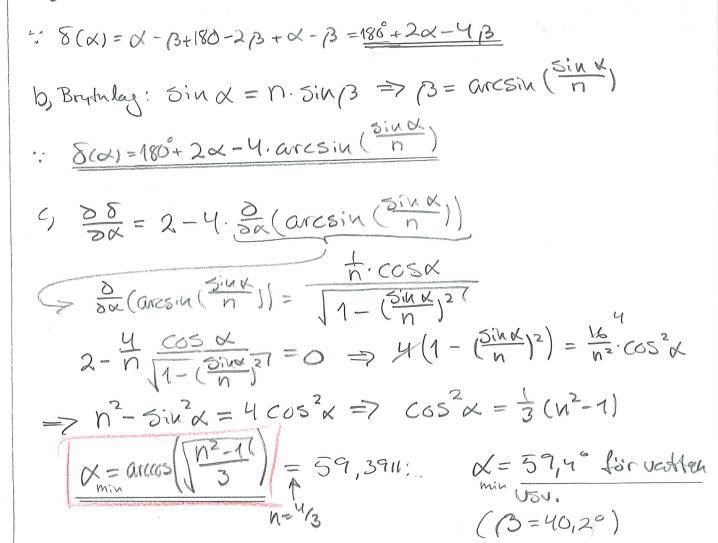 ∵ δ(α) = α - β + 180 - 2β + α - β = 180° + 2α - 4β
b, Brytnlag: sin α = n · sin β ⇒ β = arcsin(sin α / n)
∵ δ(α) = 180° + 2α - 4 · arcsin(sin α / n)
c, ∂δ/∂α = 2 - 4 · ∂/∂α (arcsin(sin α / n))
→ ∂/∂α (arcsin(sin α / n)) = (1/n · cos α) / √(1 - (sin α / n)²)
2 - 4/n cos α / √(1 - (sin α / n)²) = 0 ⇒ 4(1 - (sin α / n)²) = 16 4 / n² · cos² α
⇒ n² - sin² α = 4 cos² α ⇒ cos² α = 1/3 (n² - 1)
α min = arccos(√((n² - 1) / 3)) = 59,3911... α min = 59,4° för vatten
n = 4/3 VSV.
(β = 40,2°)